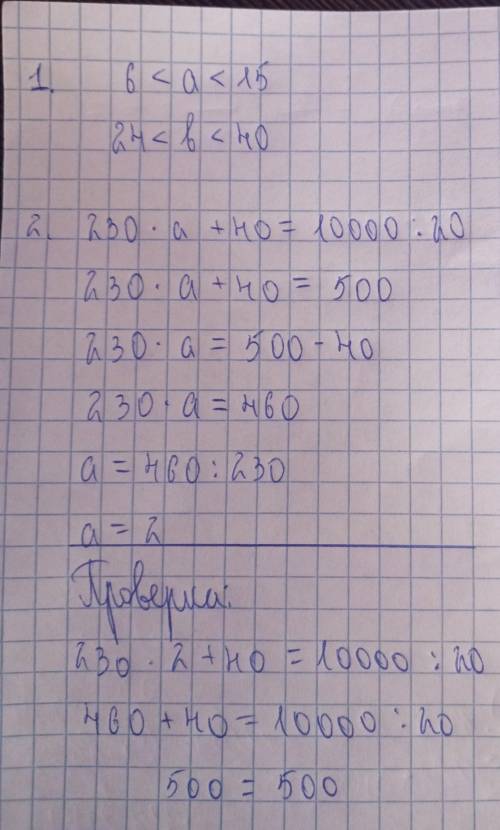 1. 6 < a < 15
24 < b < 40
2. 230 · a + 40 = 10000 : 20
230 · a + 40 = 500
230 · a = 500 - 40
230 · a = 460
a = 460 : 230
a = 2
Проверка:
230 · 2 + 40 = 10000 : 20
460 + 40 = 10000 : 20
500 = 500